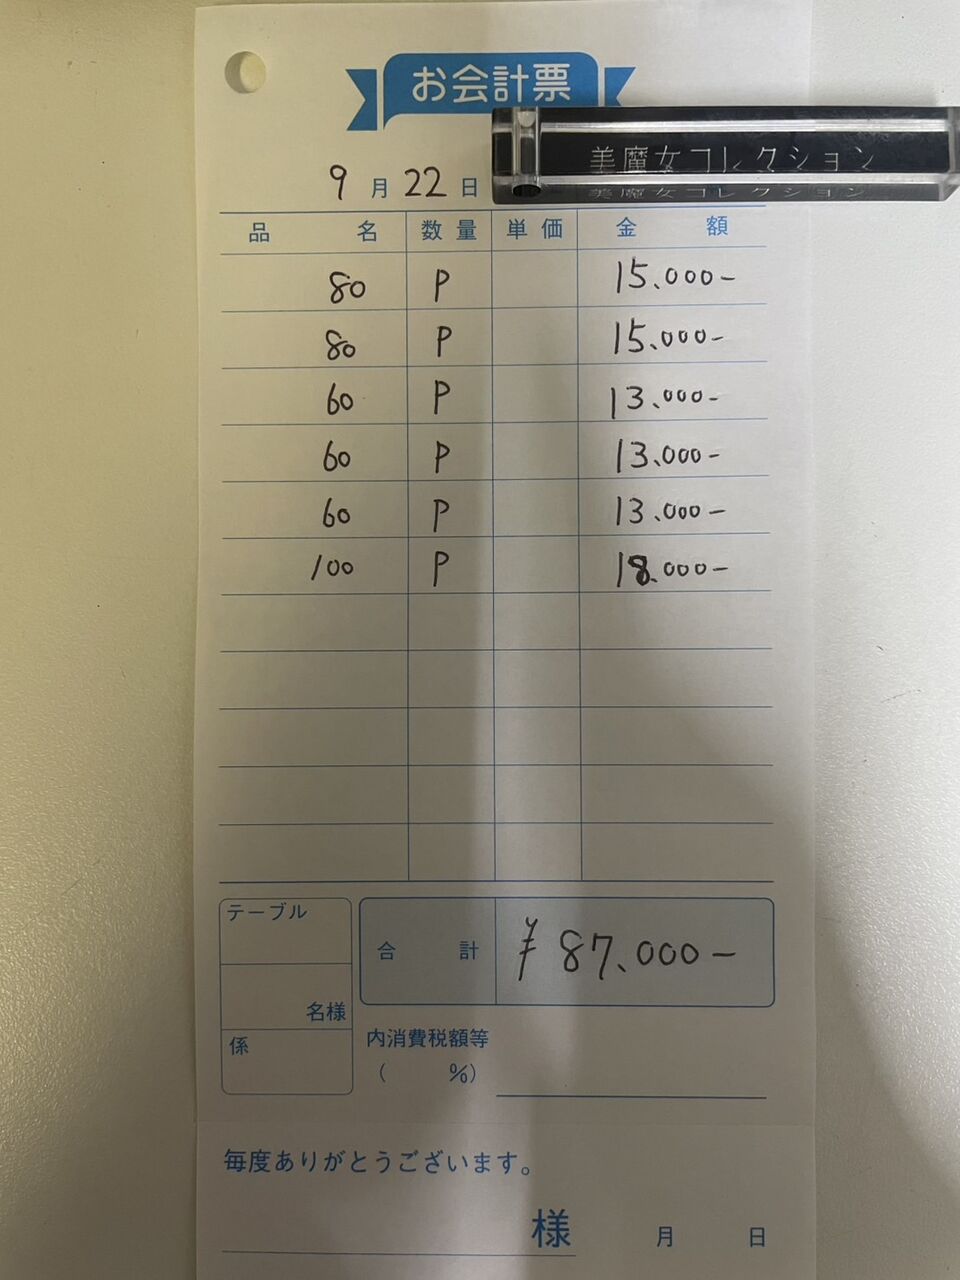 お会計票
美魔女コレクション
9月22日
品名 数量 単価 金額
80 P 15.000-
80 P 15.000-
60 P 13.000-
60 P 13.000-
60 P 13.000-
100 P 18.000-
テーブル
名様
係
合計 ¥87.000-
内消費税額等
( %)
毎度ありがとうございます。
様 月 日